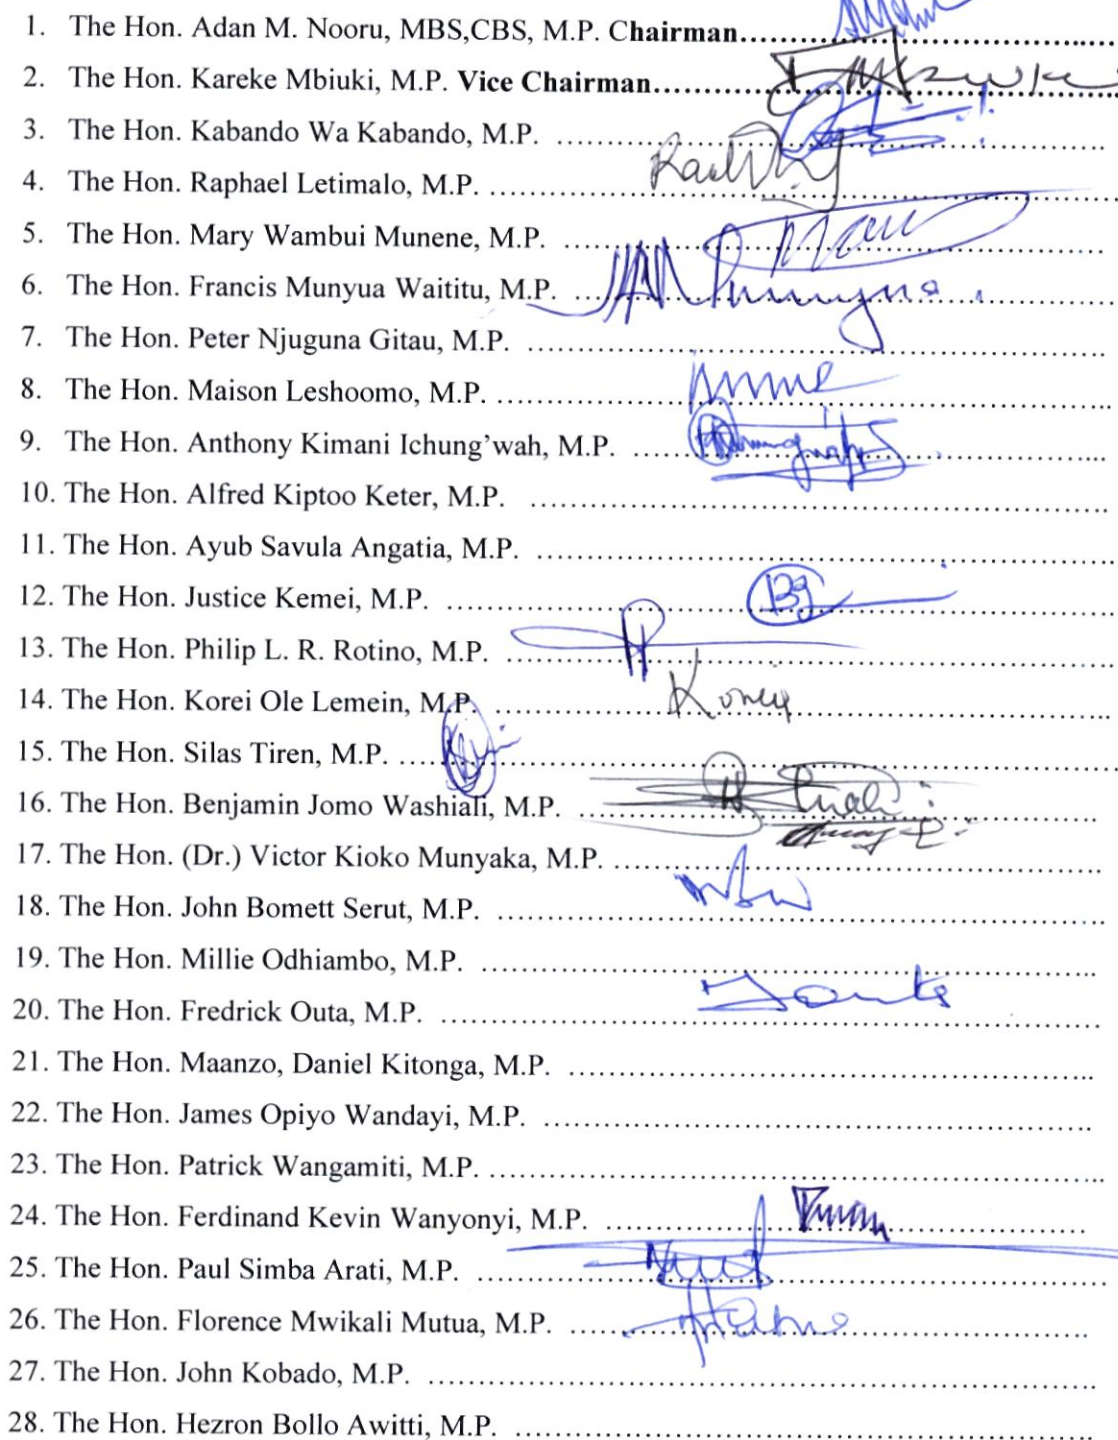 1. The Hon. Adan M. Nooru, MBS,CBS, M.P. Chairman........................................
2. The Hon. Kareke Mbiuki, M.P. Vice Chairman........................................
3. The Hon. Kabando Wa Kabando, M.P. ........................................
4. The Hon. Raphael Letimalo, M.P. ........................................
5. The Hon. Mary Wambui Munene, M.P. ........................................
6. The Hon. Francis Munyua Waititu, M.P. ........................................
7. The Hon. Peter Njuguna Gitau, M.P. ........................................
8. The Hon. Maison Leshoomo, M.P. ........................................
9. The Hon. Anthony Kimani Ichung’wah, M.P. ........................................
10. The Hon. Alfred Kiptoo Keter, M.P. ........................................
11. The Hon. Ayub Savula Angatia, M.P. ........................................
12. The Hon. Justice Kemei, M.P. ........................................
13. The Hon. Philip L. R. Rotino, M.P. ........................................
14. The Hon. Korei Ole Lemein, M.P. ........................................
15. The Hon. Silas Tiren, M.P. ........................................
16. The Hon. Benjamin Jomo Washiali, M.P. ........................................
17. The Hon. (Dr.) Victor Kioko Munyaka, M.P. ........................................
18. The Hon. John Bomett Serut, M.P. ........................................
19. The Hon. Millie Odhiambo, M.P. ........................................
20. The Hon. Fredrick Outa, M.P. ........................................
21. The Hon. Maanzo, Daniel Kitonga, M.P. ........................................
22. The Hon. James Opiyo Wandayi, M.P. ........................................
23. The Hon. Patrick Wangamiti, M.P. ........................................
24. The Hon. Ferdinand Kevin Wanyonyi, M.P. ........................................
25. The Hon. Paul Simba Arati, M.P. ........................................
26. The Hon. Florence Mwikali Mutua, M.P. ........................................
27. The Hon. John Kobado, M.P. ........................................
28. The Hon. Hezron Bollo Awitti, M.P. ........................................